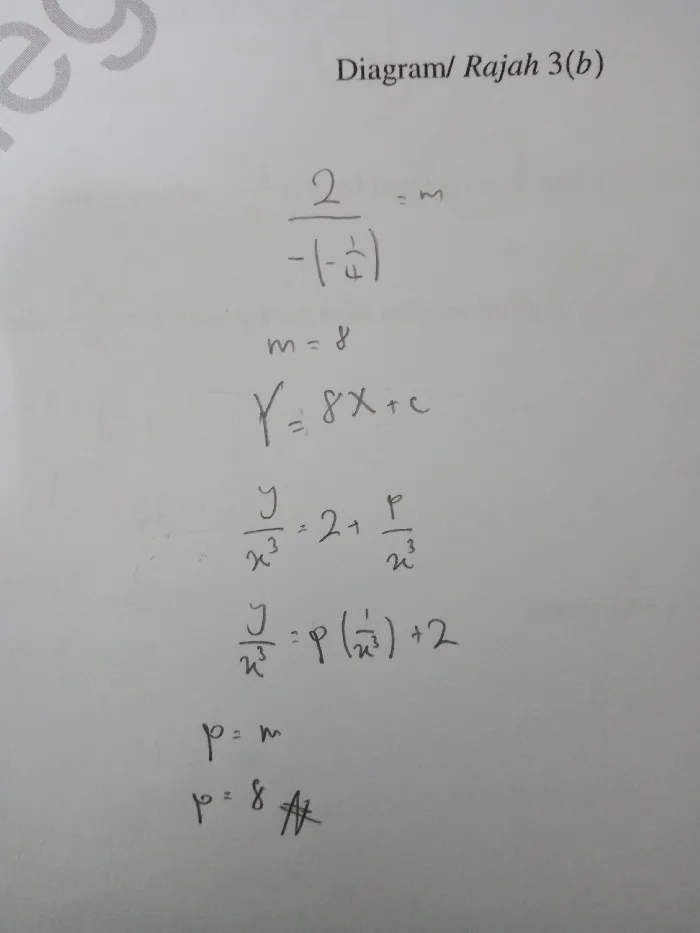 eg
Diagram/ Rajah 3(b)
2/(-(-1/4)) = m
m = 8
Y = 8X + c
y/x³ = 2 + p/x³
y/x³ = p(1/x³) + 2
p = m
p = 8